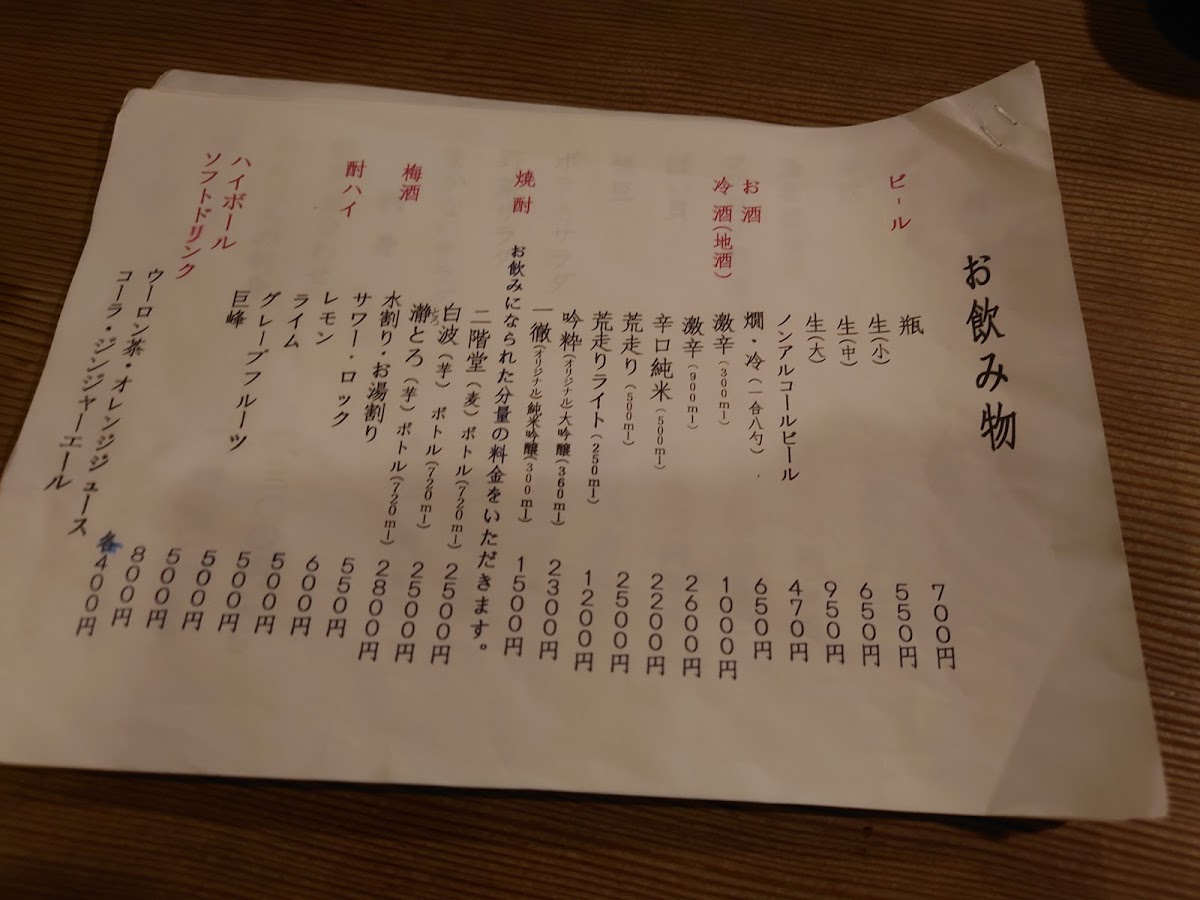 お飲み物
ビール 瓶 700円
生(小) 550円
生(中) 650円
生(大) 950円
ノンアルコールビール 470円
お酒 燗・冷(一合八勺) 650円
冷酒(地酒) 激辛(300ml) 1000円
激辛(900ml) 2600円
辛口純米(500ml) 2200円
荒走り(500ml) 2500円
荒走りライト(250ml) 1200円
吟粋(オリジナル)大吟醸(360ml) 2300円
一徹(オリジナル)純米吟醸(300ml) 1500円
焼酎 お飲みになられた分量の料金をいただきます。
二階堂(麦)ボトル(720ml) 2500円
白波(芋)ボトル(720ml) 2500円
瀞とろ(芋)ボトル(720ml) 2800円
梅酒 水割り・お湯割り 550円
サワー・ロック 600円
酎ハイ レモン 500円
ライム 500円
グレープフルーツ 500円
巨峰 500円
ハイボール 800円
ソフトドリンク ウーロン茶・オレンジジュース 各400円
コーラ・ジンジャーエール